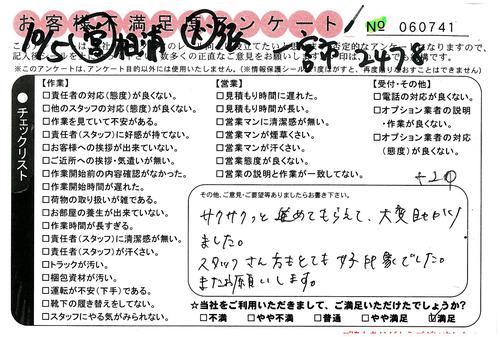 お客様不満足度アンケート
№ 060741
10/5
※このアンケートは、アンケート目的以外には使用いたしません。
チェックリスト
【作業】
□責任者の対応(態度)が良くない。
□他のスタッフの対応(態度)が良くない。
□作業を見ていて不安がある。
□責任者(スタッフ)に好感が持てない。
□お客様への挨拶が出来ていない。
□ご近所への挨拶・気遣いが無い。
□作業開始前の内容確認がなかった。
□作業開始時間が遅れた。
□荷物の取り扱いが雑である。
□お部屋の養生が出来ていない。
□作業時間が長すぎる。
□責任者(スタッフ)に清潔感が無い。
□責任者(スタッフ)が汗くさい。
□トラックが汚い。
□梱包資材が汚い。
□運転が不安(下手)である。
□靴下の履き替えをしてない。
□スタッフにやる気がみられない。
【営業】
□見積もり時間に遅れた。
□見積もり時間が長い。
□営業マンに清潔感が無い。
□営業マンが煙草くさい。
□営業マンが汗くさい。
□営業態度が良くない。
□営業の説明と作業が一致してない。
【受付・その他】
□電話の対応が良くない。
□オプション業者の説明
・作業が良くない。
□オプション業者の対応
(態度)が良くない。
その他、ご意見・ご要望等ありましたらお書き下さい。
サクサクっと進めてもらえて、大変助かり
ました。
スタッフさん方もとても好印象でした。
またお願いします。
☆当社をご利用いただきまして、ご満足いただけたでしょうか?
□不満 □やや不満 □普通 □やや満足 ☑満足